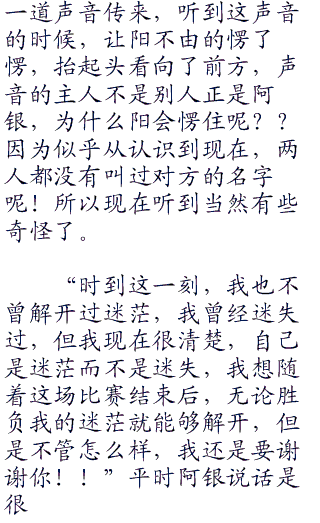 一道声音传来，听到这声音
的时候，让阳不由的愣了
愣，抬起头看向了前方，声
音的主人不是别人正是阿
银，为什么阳会愣住呢？？
因为似乎从认识到现在，两
人都没有叫过对方的名字
呢！所以现在听到当然有些
奇怪了。
“时到这一刻，我也不
曾解开过迷茫，我曾经迷失
过，但我现在很清楚，自己
是迷茫而不是迷失，我想随
着这场比赛结束后，无论胜
负我的迷茫就能够解开，但
是不管怎么样，我还是要谢
谢你！！”平时阿银说话是
很